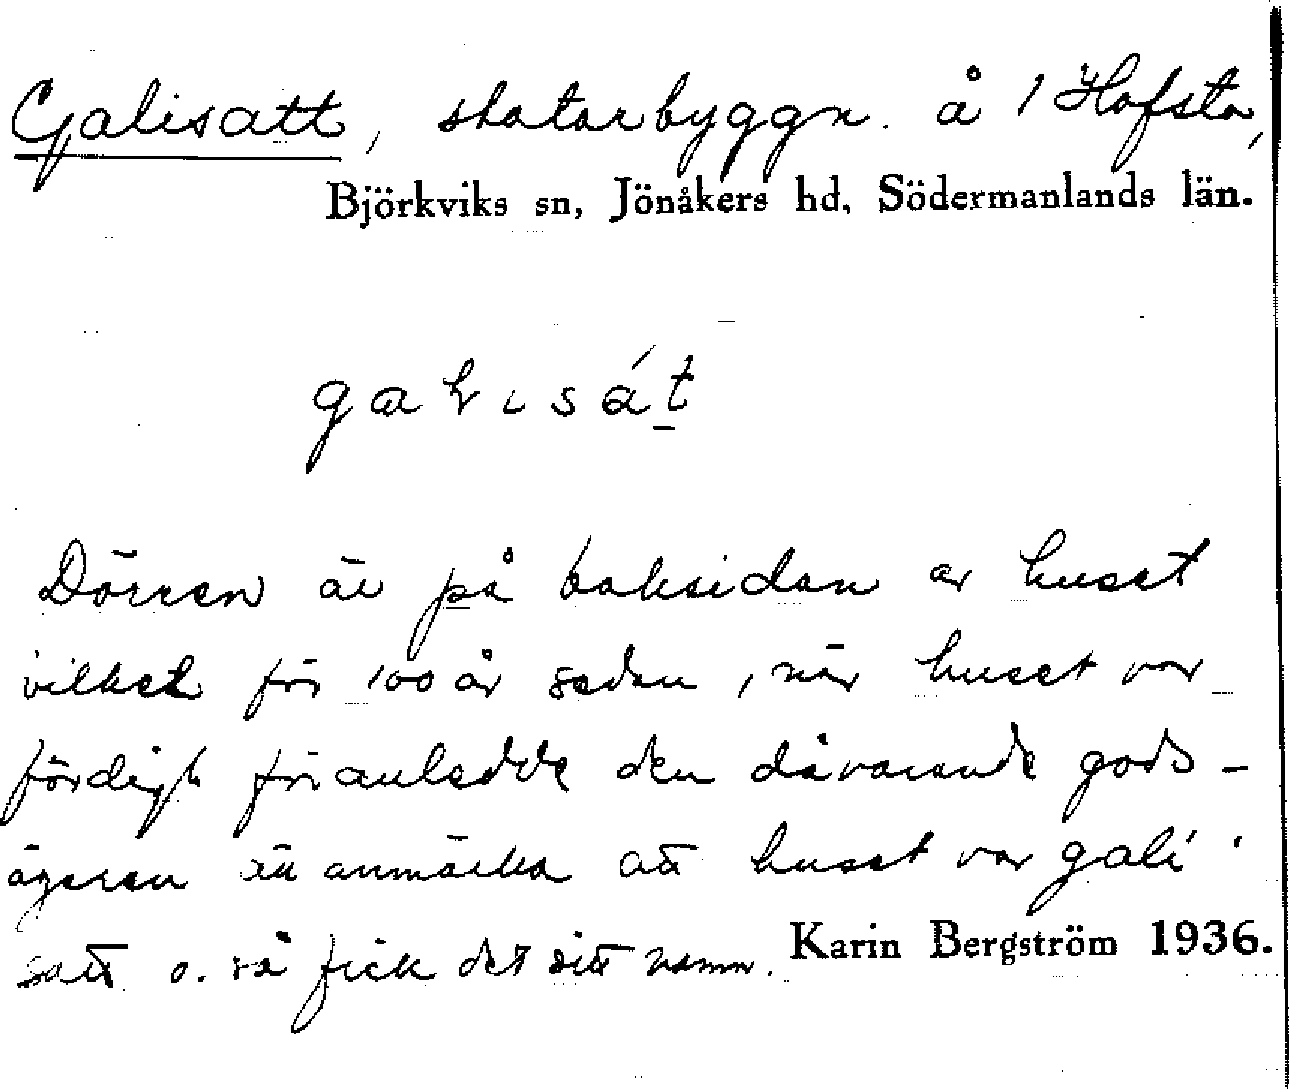 Galisatt, statarbyggn. å 1 Hofsta,
Björkviks sn, Jönåkers hd, Södermanlands län.
galısát
Dörren är på baksidan av huset
vilket för 100 år sedan, när huset var
färdigt föranledde den dåvarande gods-
ägaren att anmärka att huset var gali
satt o. så fick det sitt namn.
Karin Bergström 1936.